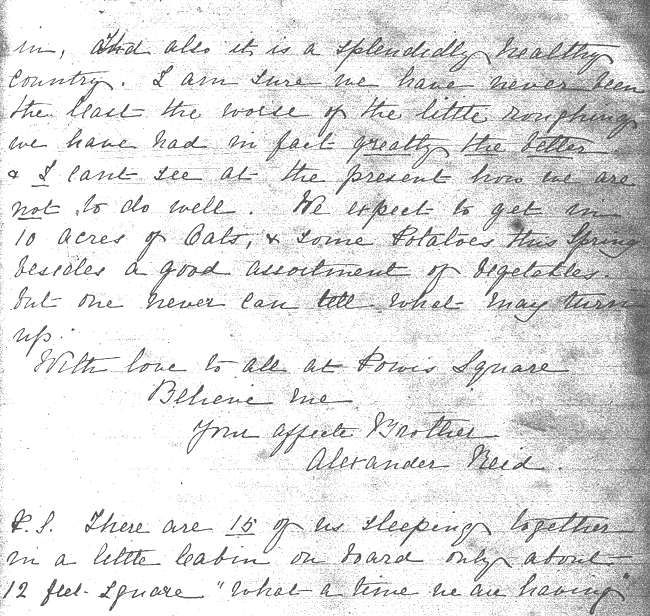 in, And also it is a splendedly healthy
country. I am sure we have never been
the least the worse of the little roughing
we have had in fact greatly the better.
& I cant see at the present how we are
not to do well. We expect to get in
10 acres of Oats, & some Potatoes this Spring
besides a good assortment of vegetables.
but one never can tell what may turn
up.
With love to all at Powis Square
Believe me
Your affecte Brother
Alexander Reid.
P.S. There are 15 of us sleeping together
in a little Cabin on board only about
12 feet square "what a time we are having"